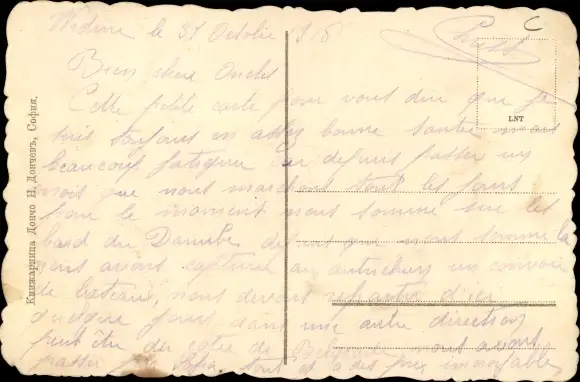 le 31 Octobre 1918
Bien chers Oncles
Cette petite carte pour vous dire que je
suis toujours en assez bonne santé mais
beaucoup fatiguer car depuis passer un
mois que nous marchons tout les jours
pour le moment nous somme sur les
bord du Danube depuis que nous somme la
nous avons capturai au autrichiens un convoie
de bateau, nous devons repartir d'ici
quelque jours dans une autre direction
peut être du coter de Belgrade nous avons
passer Sofia tout est a des prix
LNT
Книжарница Дончо Н. Дончевъ, София.